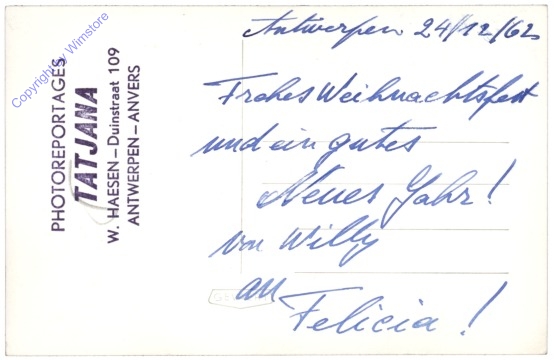 Copyright by Wimstore
PHOTOREPORTAGES
TATJANA
W. HAESEN - Duinstraat 109
ANTWERPEN - ANVERS
Antwerpen 24/12/62
Frohes Weihnachtsfest
und ein gutes
Neues Jahr!
von Willy
an
Felicia!